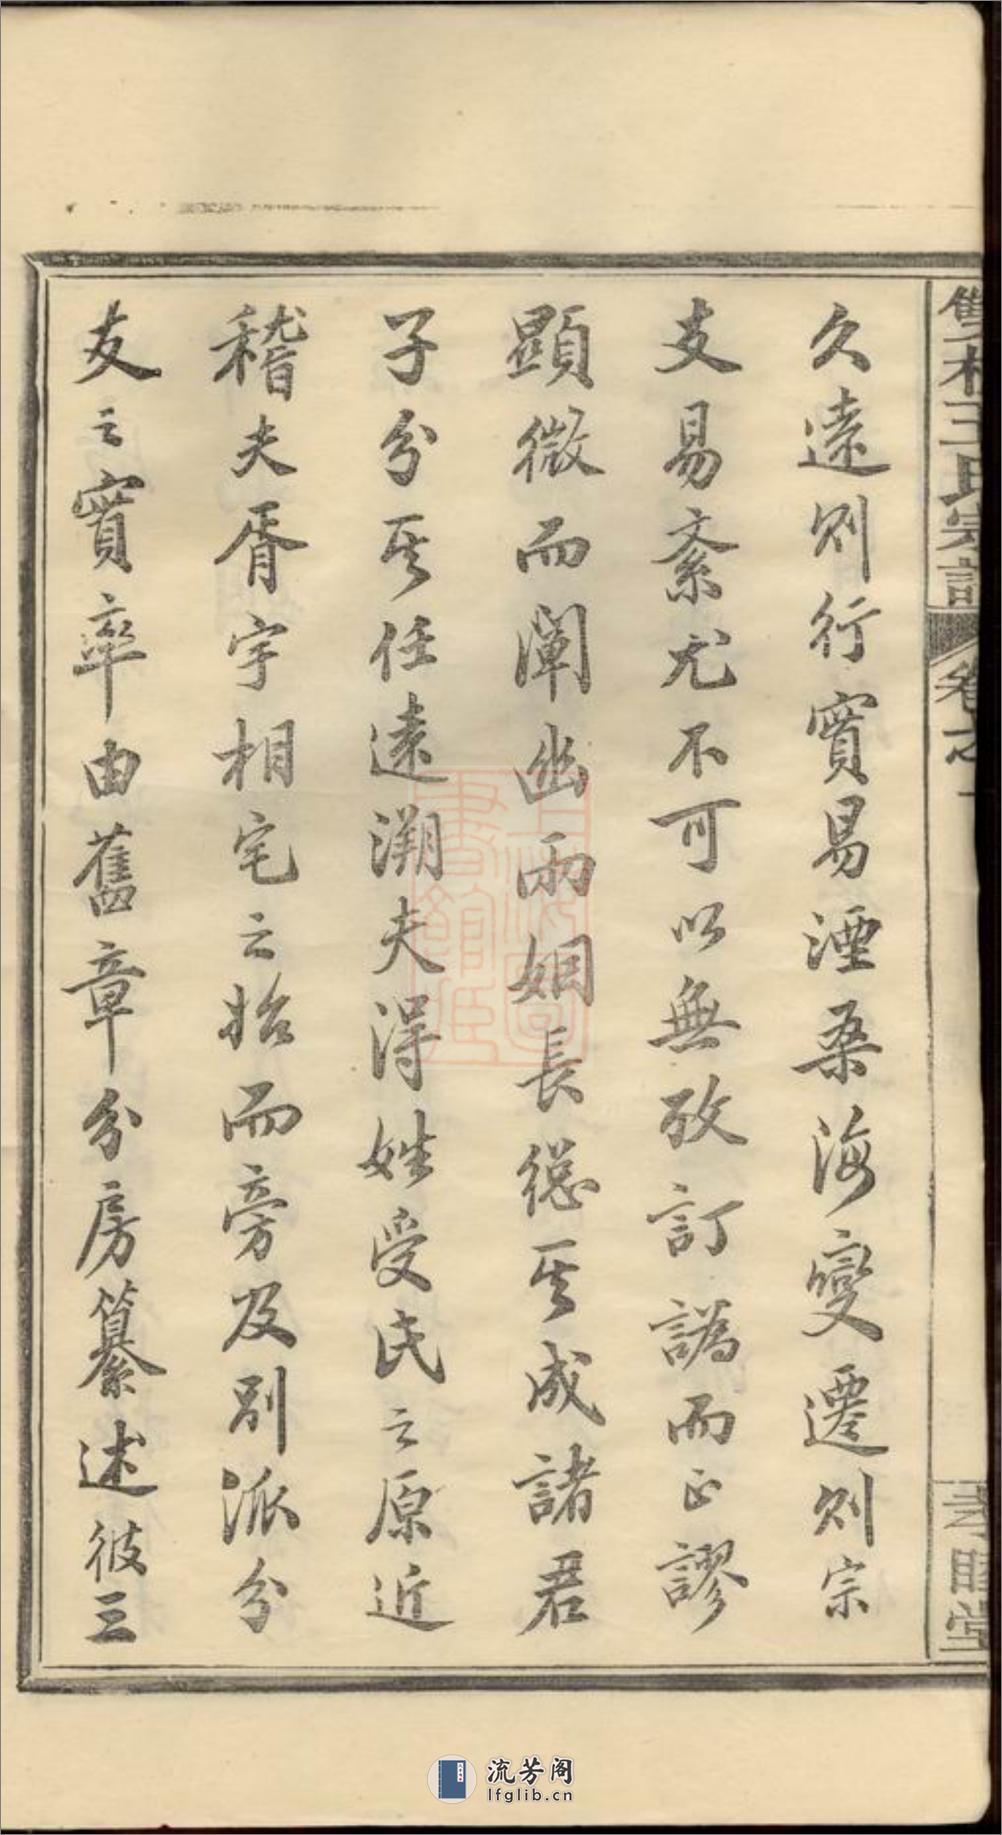 久遠則行實易湮桑海變遷則宗
支易紊尤不可以無攷訂譌而正謬
顯微而闡幽兩姻長總其成諸君
子分其任遠溯夫得姓受氏之原近
稽夫胥宇相宅之始而旁及別派分
支之實率由舊章分房纂述彼三
王氏宗譜
卷之一
孝睦堂
上海圖書館藏
流芳阁
lfglib.cn